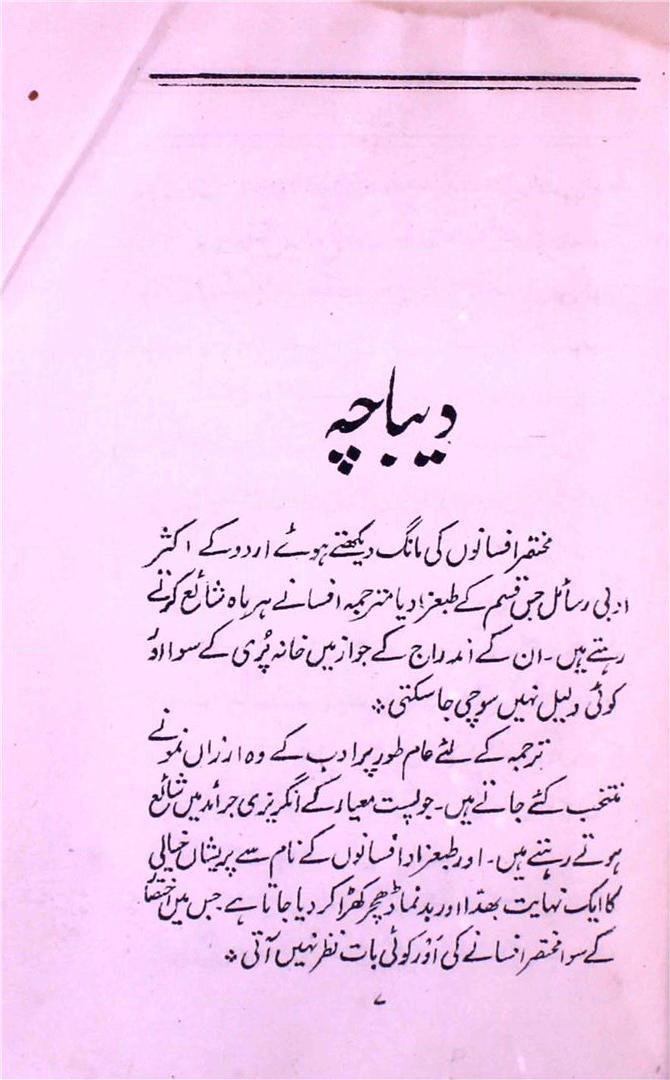 دیباچہ
مختصر افسانوں کی مانگ دیکھتے ہوئے اردو کے اکثر
ادبی رسائل جس قسم کے طبعزاد یا مترجمہ افسانے ہر ماہ شائع کرتے
رہتے ہیں۔ ان کے اندراج کے جواز میں خانہ پُری کے سوا اور
کوئی دلیل نہیں سوچی جا سکتی ٭
ترجمہ کے لئے عام طور پر ادب کے وہ ارزاں نمونے
منتخب کئے جاتے ہیں۔ جو پست معیار کے انگریزی جرائد میں شائع
ہوتے رہتے ہیں۔ اور طبعزاد افسانوں کے نام سے پریشاں خیالی
کا ایک نہایت بھدّا اور بدنما ڈھچر کھڑا کر دیا جاتا ہے جس میں اختصار
کے سوا مختصر افسانے کی اَور کوئی بات نظر نہیں آتی ٭
۷